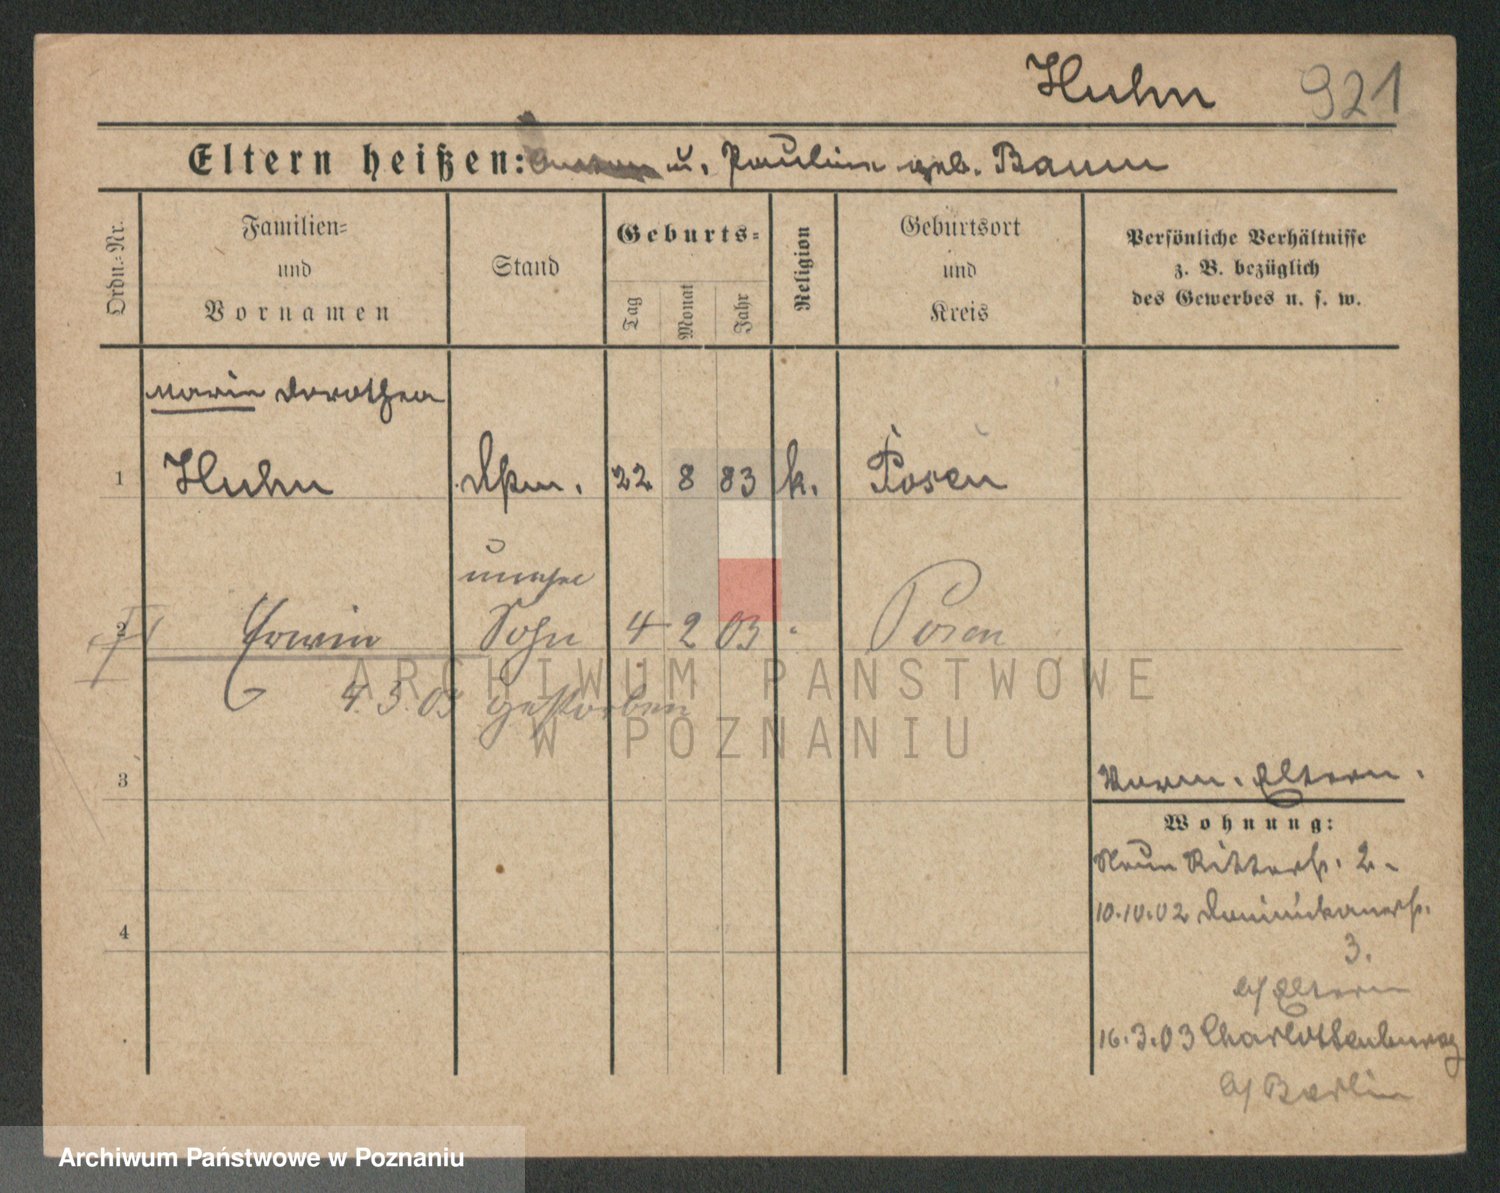 Huhn 921
Eltern heißen: u. Pauline geb. Baum
Ordn.-Nr.
Familien-
und
Vornamen
Stand
Geburts-
Tag
Monat
Jahr
Religion
Geburtsort
und
Kreis
Persönliche Verhältnisse
z. B. bezüglich
des Gewerbes u. s. w.
Marie Dorothea
1 Huhn 22 8 83 k. Posen
unehel
2 Erwin Sohn 4 2 03 Posen
4.3.03 gestorben
3
4
Eltern.
Wohnung:
Neue Ritterstr. 2.
10.10.02 Dominikanerstr.
3.
b/ Eltern
16.3.03 Charlottenburg
b/ Berlin
ARCHIWUM PAŃSTWOWE
W POZNANIU
Archiwum Państwowe w Poznaniu